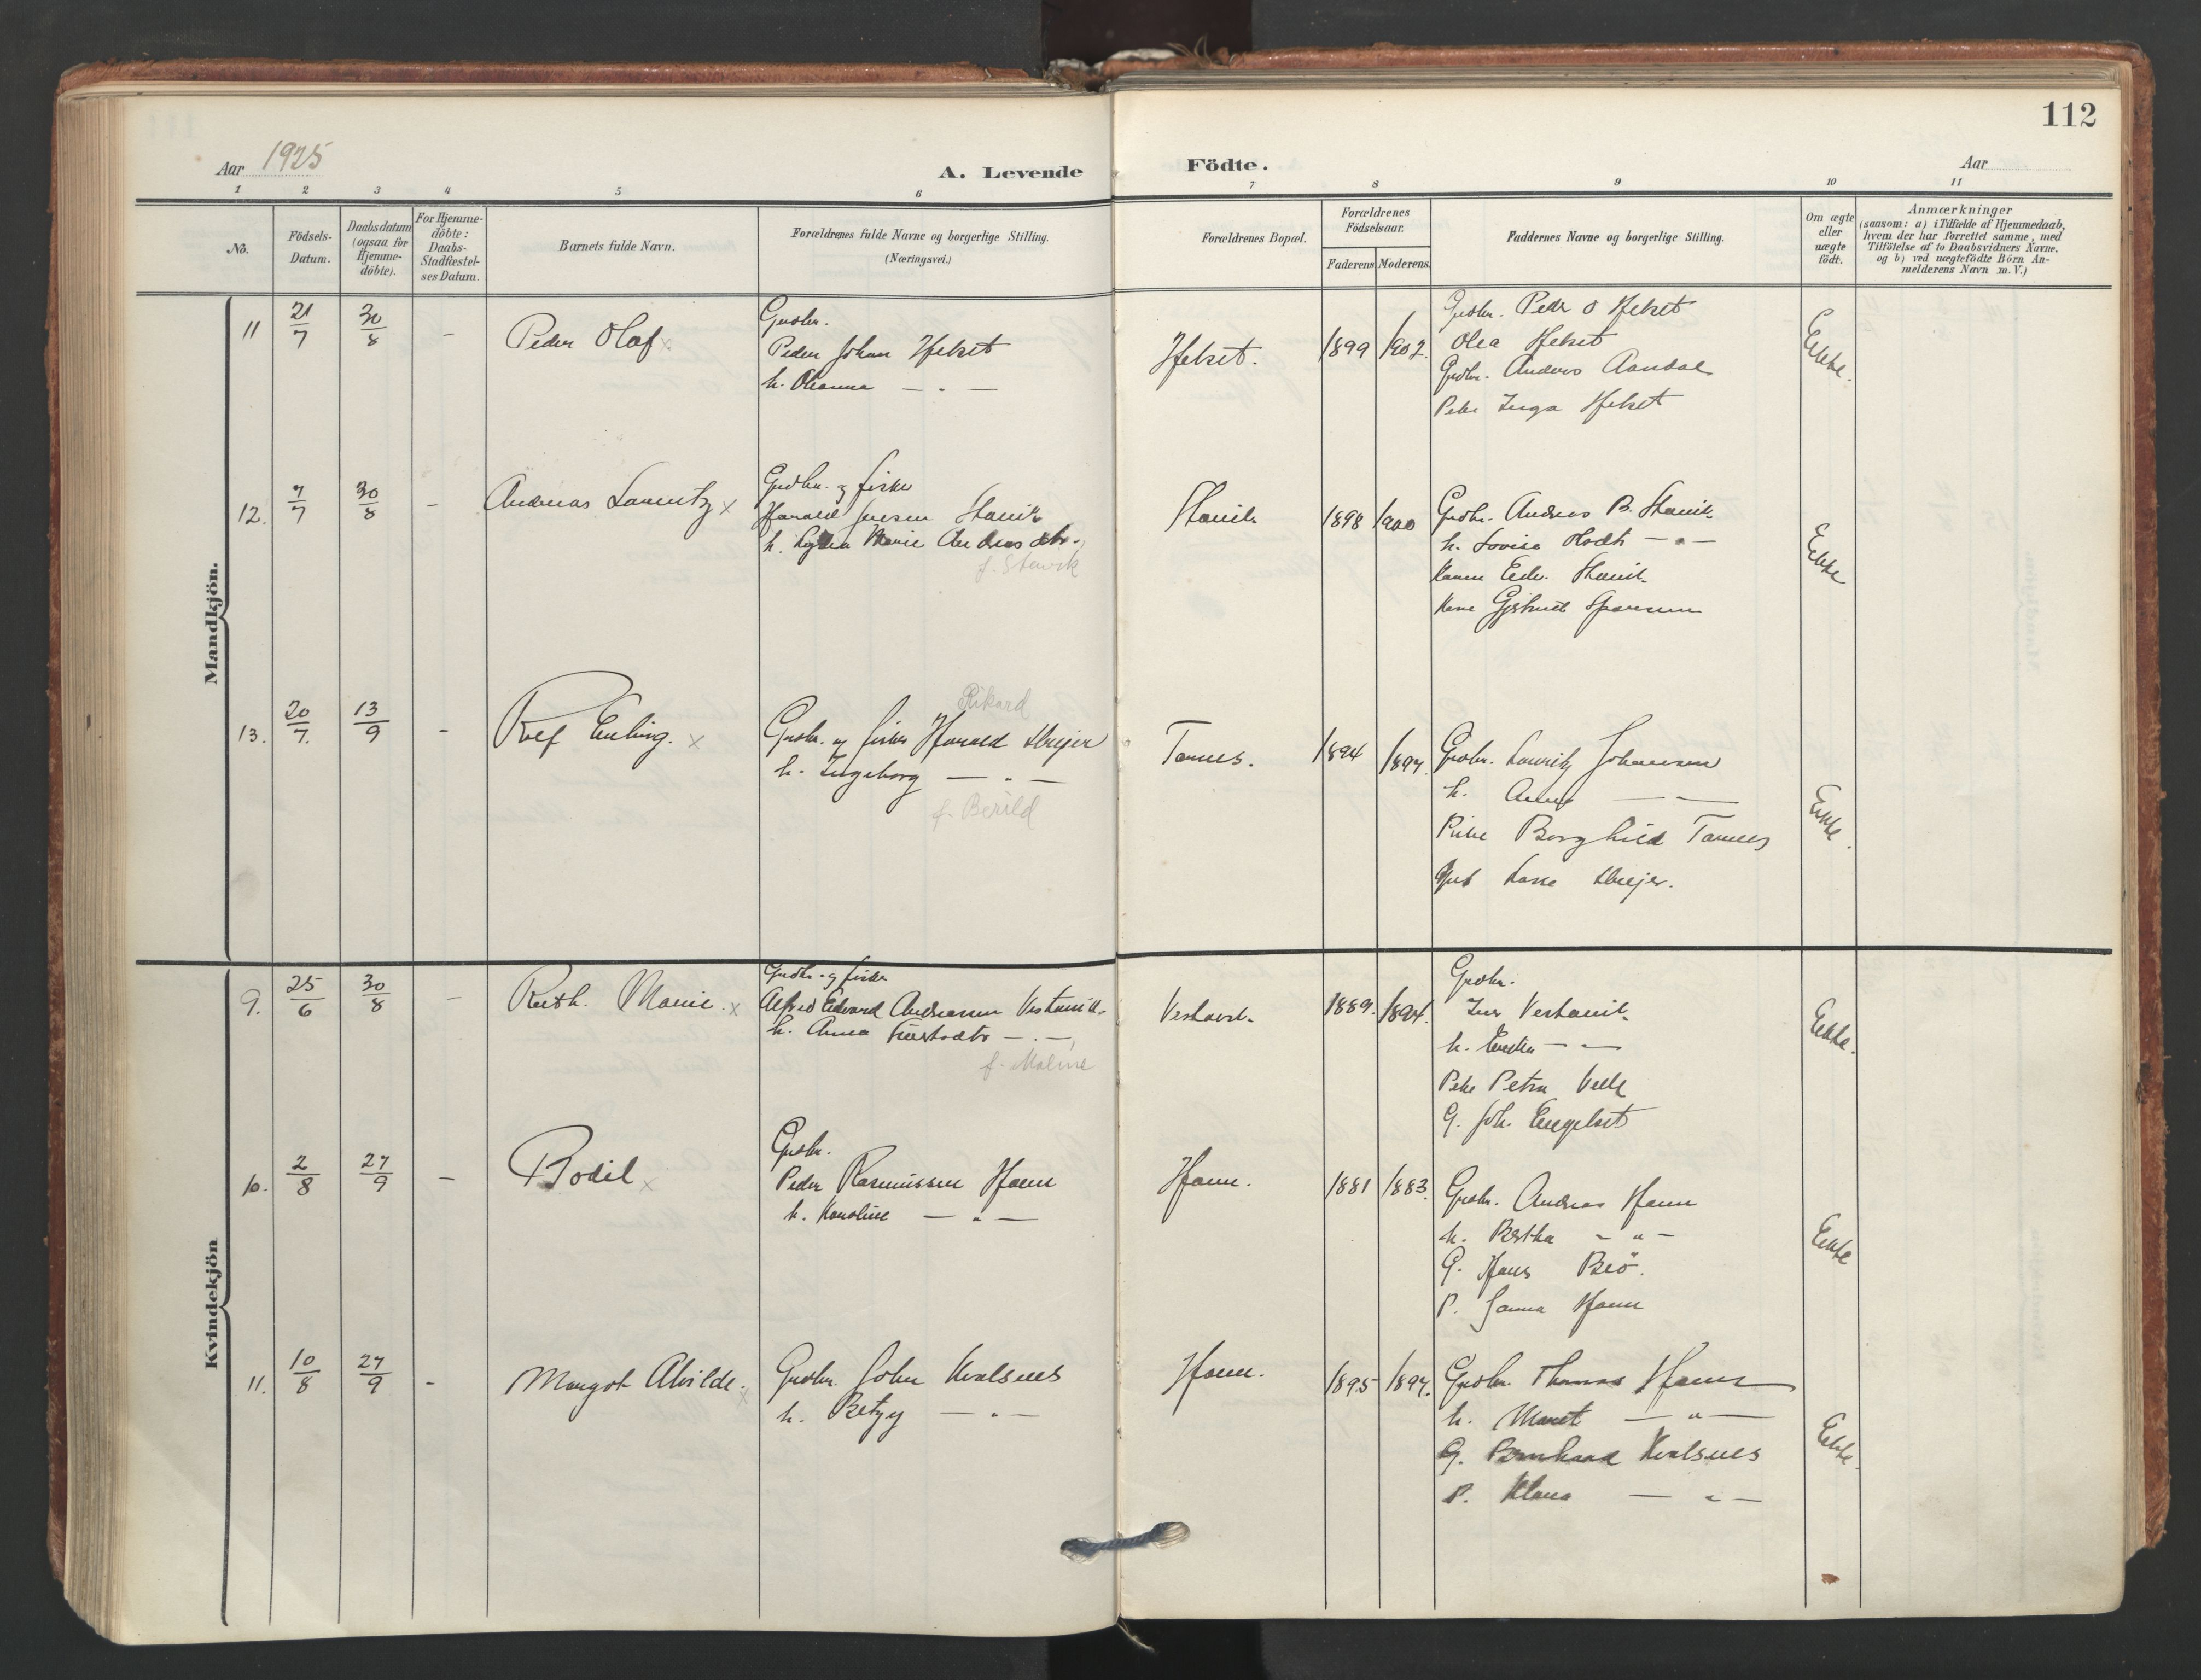 112
Aar 1925
A. Levende Födte.
Aar
1 2 3 4 5 6 7 8 9 10 11
No.
Födsels-Datum.
Daabsdatum (ogsaa for Hjemme-döbte).
For Hjemme-döbte: Daabs-Stadfæstel-ses Datum.
Barnets fulde Navn.
Forældrenes fulde Navne og borgerlige Stilling.
(Næringsvei.)
Forældrenes Bopæl.
Forældrenes Födselsaar.
Faderens Moderens
Faddernes Navne og borgerlige Stilling.
Om ægte eller uægte födt.
Anmærkninger
(saasom: a) i Tilfælde af Hjemmedaab,
hvem der har forrettet samme, med
Tilföielse af to Daabsvidners Navne,
og b) ved uægtefödte Börn An-
melderens Navn m. V.)
Mandkjön.
11 21/7 30/8 - Peder Olaf x
Gmbr.
Peder Johan Helset
h. Oleanna — " —
Helset. 1899 1902.
Gmbr. Peder O Helset
Olea Helset
Gmbr. Anders Aandal
Pike Inga Helset
Ekte.
12. 7/7 30/8 - Andreas Lauritz x
Gmbr. og fisker
Harald Jensen Stavik
h. Marie Andreasdtr.
f. Stavik
Stavik 1898 1900
Gmbr. Andreas B. Stavik
h. Lovise — " —
Stavik
Ekte
13. 20/7. 13/9 - Rolf Erling. x
Rikard
Gmbr. og fisker Harald
h. Ingeborg — " —
f. Berild
Tornes. 1894 1897.
Gmbr. Lauritz Johansen
h. Anna — —
Pike Borghild Tornes
Ekte.
Kvindekjön
9. 25/6 30/8 - Ruth Marie x
Gmbr. og fisker
Alfred Edvard Andreassen Vestavik
h. Anna — " —
f. Malme
Vestavik 1889. 1894.
Gmbr.
Vestavik
h. — " —
Pike Petra
G. Joh. Engelset
Ekte.
10. 2/8 27/9 - Bodil x
Gmbr.
Peder Rasmussen Harn
h. Karoline — " —
Harn. 1881 1883.
Gmbr. Andreas Harn
h. Bertha - " -
G. Hans Bö.
P. Harn
Ekte
11. 10/8 27/9 - Margot Alvilde. x
Gmbr. John Kvalsnes
h. Betzy — " —
Harn. 1895 1897.
Gmbr. Thomas Harn
h. Marit — " —
G. Bernhard Kvalsnes
P. Klara — " —
Ekte.